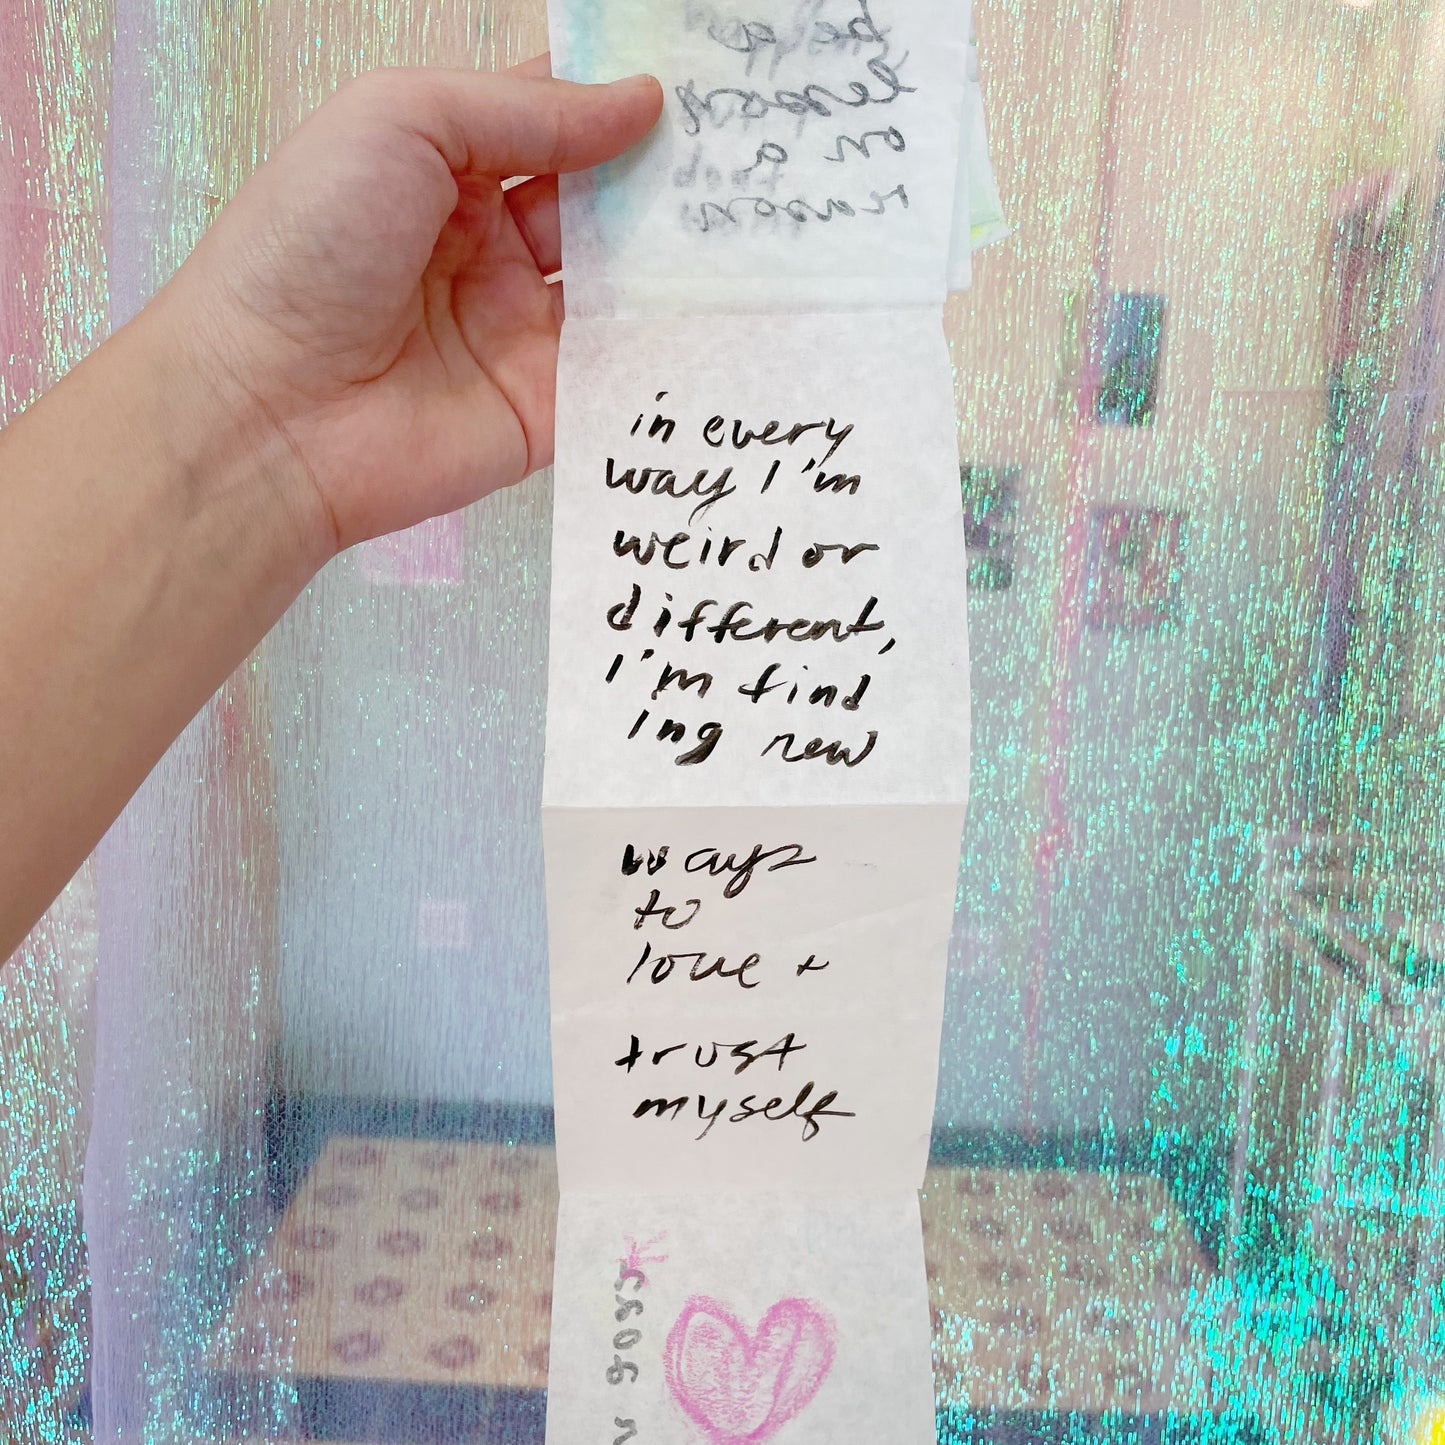 reason
in every
way I'm
weird or
different,
I'm find
ing new
ways
to
love +
trust
myself